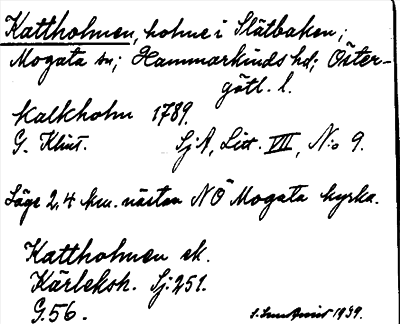 Kattholmen, holme i Slätbaken;
Mogata sn; Hammarkinds hd; Öster-
götl. l.
Kalkholm 1789.
G. Klint. SjA, Litt. VIII, N:o 9.
Läge 2,4 km. nästan NÖ Mogata kyrka.
Kattholmen ek.
Kärleksh. Sj. 251.
G. 56.
1939.